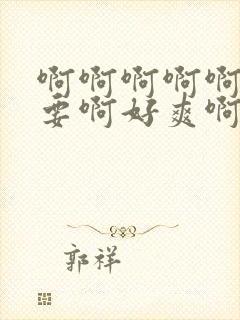 啊啊啊啊啊
要啊好爽啊
郭祥